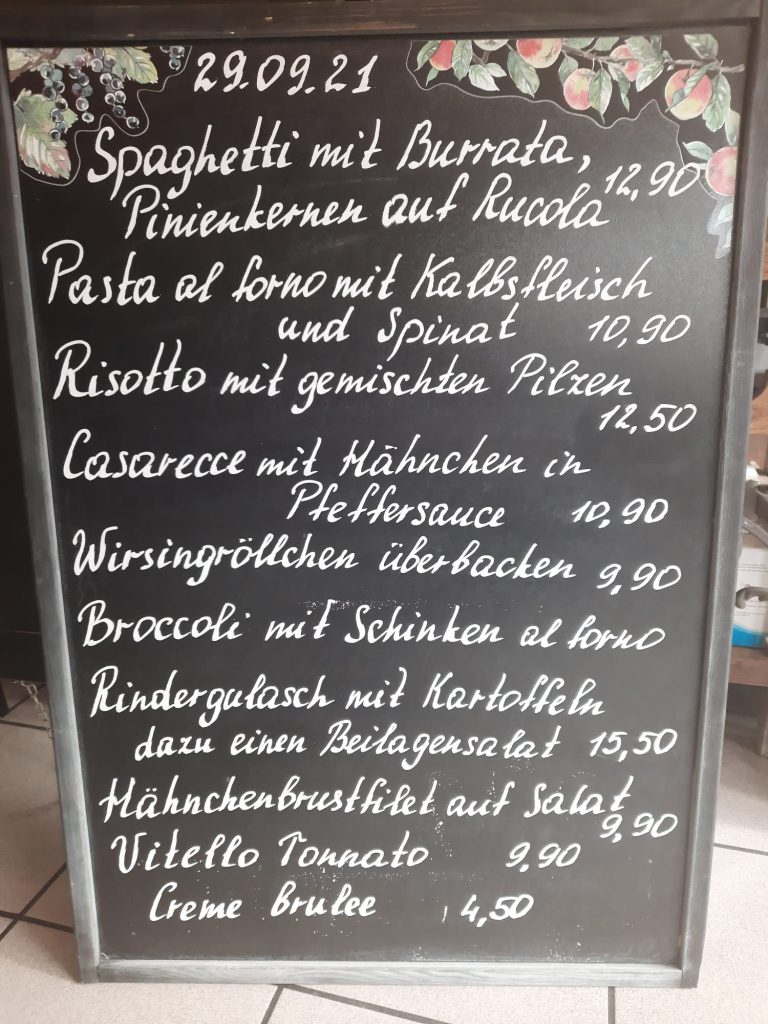 29.09.21
Spaghetti mit Burrata,
Pinienkernen auf Rucola 12,90
Pasta al forno mit Kalbsfleisch
und Spinat 10,90
Risotto mit gemischten Pilzen
12,50
Casarecce mit Hähnchen in
Pfeffersauce 10,90
Wirsingröllchen überbacken 9,90
Broccoli mit Schinken al forno
Rindergulasch mit Kartoffeln
dazu einen Beilagensalat 15,50
Hähnchenbrustfilet auf Salat
9,90
Vitello Tonnato 9,90
Creme brulee 4,50